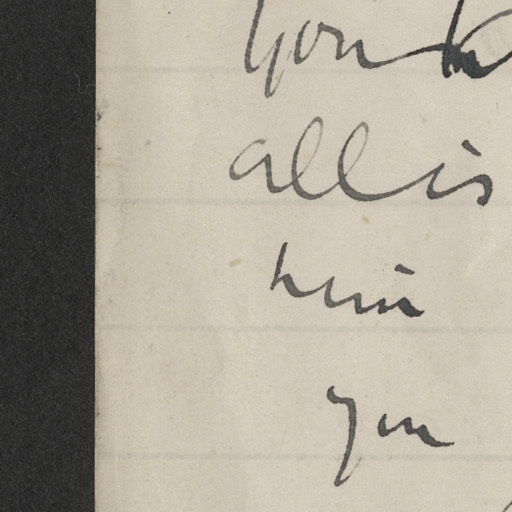 you
all is
him
you